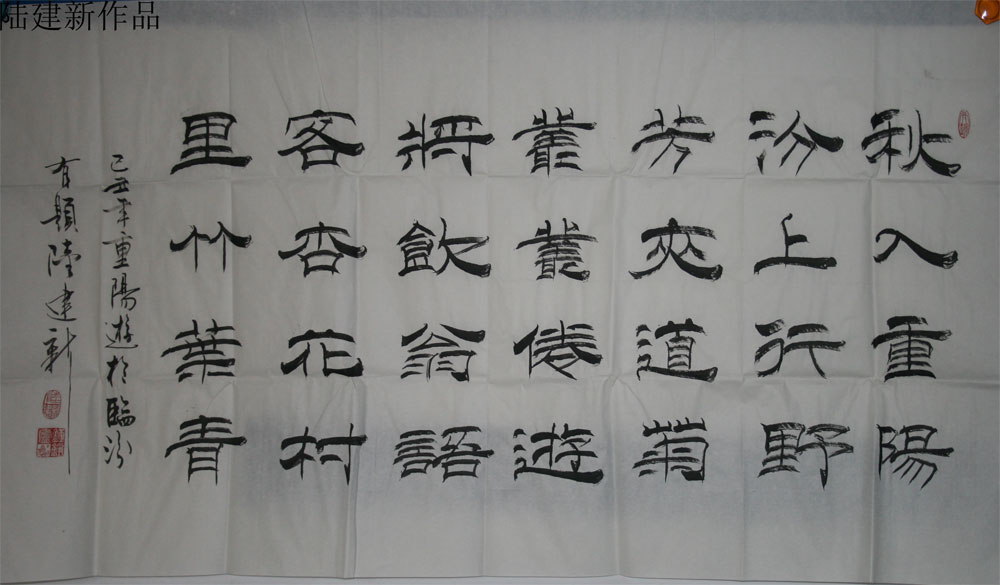 陆建新作品
秋入重陽
汾上行野
芳夾道菊
叢叢倦遊
將飲翁語
客杏花村
里竹葉青
己丑年重陽遊於臨汾
有題陸建新